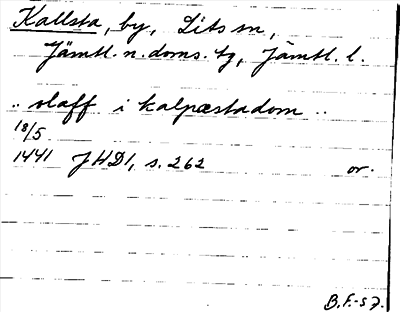 Kallsta, by, Lits sn,
Jämtl. n. doms. tg, Jämtl. l.
.. olaff i kalpæstadom ..
18/5
1441 JHD1, s. 262 or.
B.F.-57.